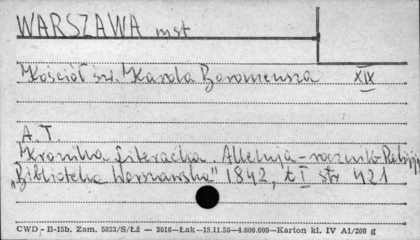 WARSZAWA mst
Kościół św. Karola Boromeusza XIX
A.T.
Kronika literacka. Alleluja - noworoczn.
"Biblioteka Warszawska" 1842, t I str 421
CWD - B-15b. Zam. 5823/S/Łź — 3016—Łak—15.11.56—4.000.000—Karton kl. IV A1/200 g